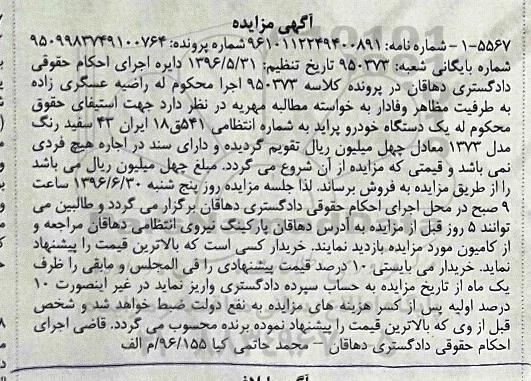 آگهی مزایده
۵۵۶۷-۱- شماره نامه: ۹۶۱۰۱۱۲۲۴۹۴۰۰۸۹۱ شماره پرونده: ۹۵۰۹۹۸۳۷۴۹۱۰۰۷۶۴
شماره بایگانی شعبه: ۹۵۰۳۷۳ تاریخ تنظیم: ۱۳۹۶/۵/۳۱ دایره اجرای احکام حقوقی
دادگستری دهاقان در پرونده کلاسه ۹۵۰۳۷۳ اجرا محکوم له راضیه عسگری زاده
به طرفیت مظاهر وفادار به خواسته مطالبه مهریه در نظر دارد جهت استیفای حقوق
محکوم له یک دستگاه خودرو پراید به شماره انتظامی ۵۴۱ق۱۸ ایران ۴۳ سفید رنگ
مدل ۱۳۷۳ معادل چهل میلیون ریال تقویم گردیده و دارای سند در اجاره هیچ فردی
نمی باشد و قیمتی که مزایده از آن شروع می گردد. مبلغ چهل میلیون ریال می باشد
را از طریق مزایده به فروش برساند. لذا جلسه مزایده روز پنج شنبه ۱۳۹۶/۶/۳۰ ساعت
۹ صبح در محل اجرای احکام حقوقی دادگستری دهاقان برگزار می گردد و طالبین می
توانند ۵ روز قبل از مزایده به آدرس دهاقان پارکینگ نیروی انتظامی دهاقان مراجعه و
از کامیون مورد مزایده بازدید نمایند. خریدار کسی است که بالاترین قیمت را پیشنهاد
نماید. خریدار می بایستی ۱۰ درصد قیمت پیشنهادی را فی المجلس و مابقی را ظرف
یک ماه از تاریخ مزایده به حساب سپرده دادگستری واریز نماید در غیر اینصورت ۱۰
درصد اولیه پس از کسر هزینه های مزایده به نفع دولت ضبط خواهد شد و شخص
قبل از وی که بالاترین قیمت را پیشنهاد نموده برنده محسوب می گردد. قاضی اجرای
احکام حقوقی دادگستری دهاقان – محمد حاتمی کیا ۹۶/۱۵۵/م الف